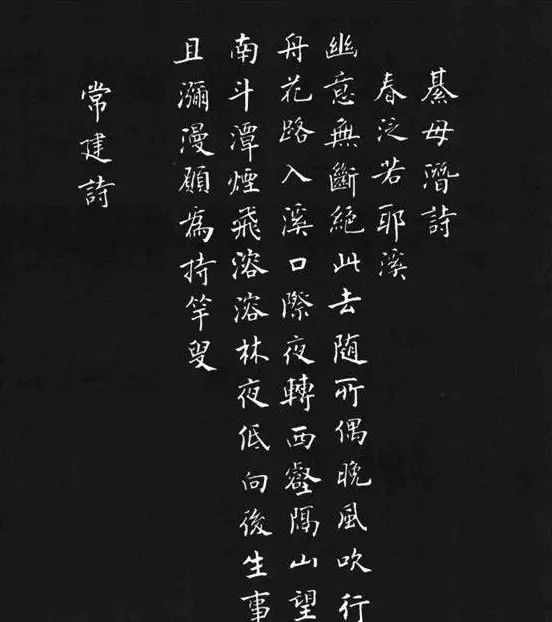 綦毋潛詩
春泛若耶溪
幽意無斷絕此去隨所偶晚風吹行
舟花路入溪口際夜轉西壑隔山望
南斗潭煙飛溶溶林夜低向後生事
且瀰漫願為持竿叟
常建詩